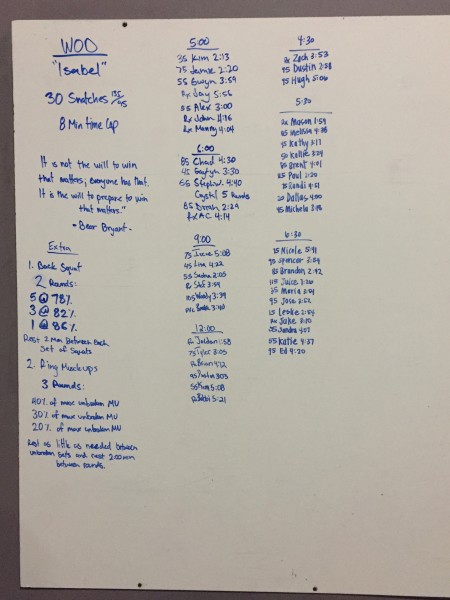 WOD
"Isabel"
30 Snatches 135/95
8 Min time Cap
It is not the will to win
that matters, everyone has that.
It is the will to prepare to win
that matters."
- Bear Bryant -
Extra
1. Back Squat
2 Rounds:
5 @ 78%
3 @ 82%
1 @ 86%
Rest 2 Min Between Each
Set of Squats
2. Ring Muscle ups
3 Rounds:
40% of max unbroken MU
30% of max unbroken MU
20% of max unbroken MU
Rest as little as needed between
unbroken sets and rest 2:00 min
between rounds.
5:00
35 Kim 2:13
75 Jamie 2:20
55 Gwyn 3:59
Rx Jay 5:56
55 Alex 3:00
Rx John 4:16
Rx Manny 4:04
6:00
85 Chad 4:30
45 3:30
55 Steph W. 4:40
Crystal 5 Rounds
85 2:29
Rx A.C. 4:14
9:00
75 Irene 5:08
45 Lisa 4:22
55 Sasha 2:05
Rx Stef 3:54
105 Woody 3:39
3:40
12:00
Rx 1:58
75 Tyler 3:05
Rx Brian 4:12
95
55 Kim 5:08
Rx Bobbi 5:21
4:30
Rx Zach 3:53
95 Dustin 2:58
95 Hugh 5:06
5:30
Rx Mason 1:59
65 Melissa
Kathy 3:13
50 Kellie 3:24
85 Brent 4:01
85 Paul 2:20
75 Randi 4:51
Dallas 4:00
45 Michele
6:30
75 Nicole
95 Spencer 3:54
85 Brandon 2:42
115 Juice 3:26
35 Maria 3:54
95 Jose 2:52
15 Leslie 2:54
Rx Jake 3:10
Sandra
55 Katie 4:37
95 Ed 4:20